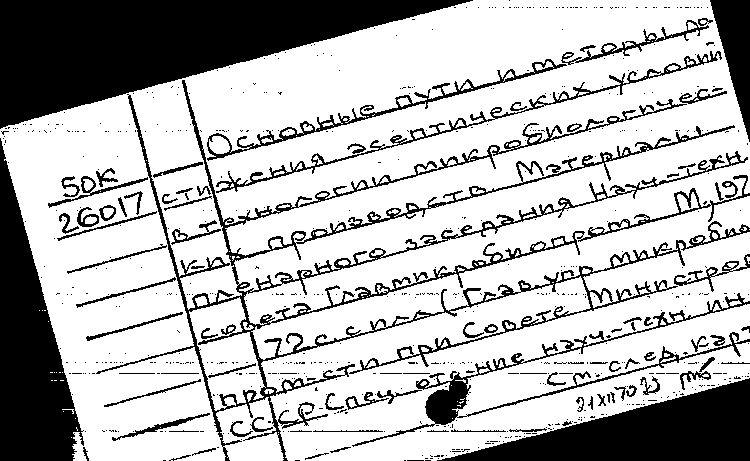 Основные пути и методы до
50К
26017
стижения асептических условий
в технологии микробиологичес-
ких производств. Материалы
пленарного заседания Науч.-техн.
совета Главмикробиопрома М., 197
72 с. с илл (Глав. упр микробио
пром-сти при Совете Министров
СССР. Спец. отд-ние науч.-техн. ин
См. след. карт